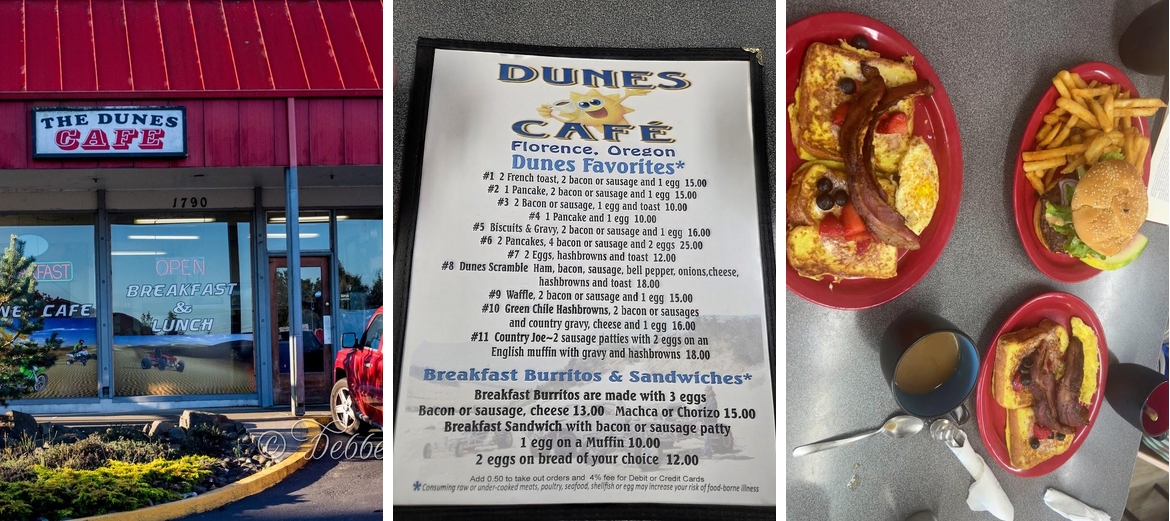 THE DUNES
CAFE
1790
OPEN
BREAKFAST
&
LUNCH
CAFE
© Debbe
DUNES
CAFÉ
Florence, Oregon
Dunes Favorites*
#1 2 French toast, 2 bacon or sausage and 1 egg 15.00
#2 1 Pancake, 2 bacon or sausage and 1 egg 15.00
#3 2 Bacon or sausage, 1 egg and toast 10.00
#4 1 Pancake and 1 egg 10.00
#5 Biscuits & Gravy, 2 bacon or sausage and 1 egg 16.00
#6 2 Pancakes, 4 bacon or sausage and 2 eggs 25.00
#7 2 Eggs, hashbrowns and toast 12.00
#8 Dunes Scramble Ham, bacon, sausage, bell pepper, onions,cheese,
hashbrowns and toast 18.00
#9 Waffle, 2 bacon or sausage and 1 egg 15.00
#10 Green Chile Hashbrowns, 2 bacon or sausages
and country gravy, cheese and 1 egg 16.00
#11 Country Joe~2 sausage patties with 2 eggs on an
English muffin with gravy and hashbrowns 18.00
Breakfast Burritos & Sandwiches*
Breakfast Burritos are made with 3 eggs
Bacon or sausage, cheese 13.00 Machca or Chorizo 15.00
Breakfast Sandwich with bacon or sausage patty
1 egg on a Muffin 10.00
2 eggs on bread of your choice 12.00
Add 0.50 to take out orders and 4% fee for Debit or Credit Cards
*Consuming raw or under-cooked meats, poultry, seafood, shellfish or egg may increase your risk of food-borne illness